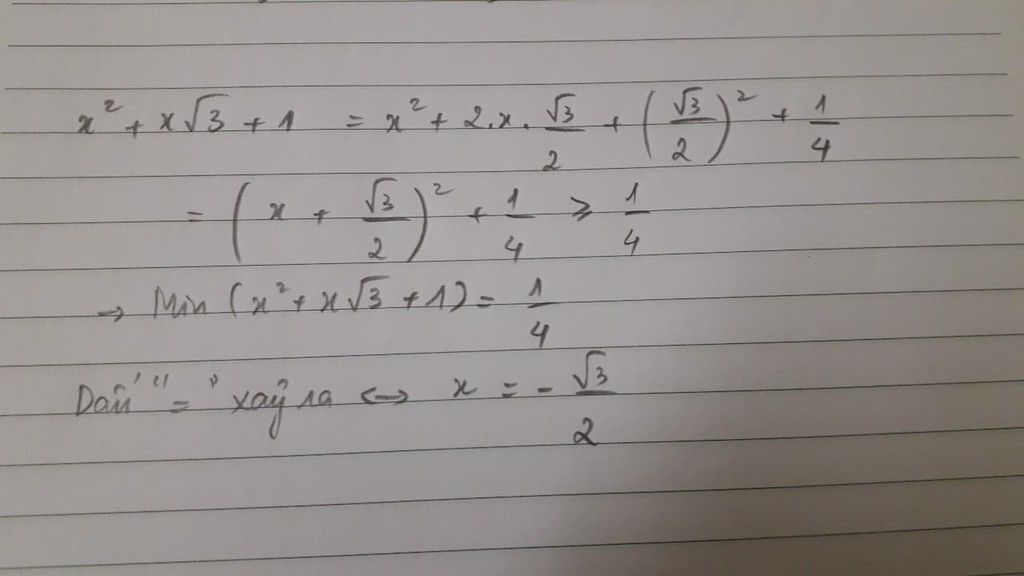 x² + x√3 + 1 = x² + 2.x.√3/2 + (√3/2)² + 1/4
= (x + √3/2)² + 1/4 ≥ 1/4
→ Min (x² + x√3 + 1) = 1/4
Dấu "=" xảy ra ↔ x = -√3/2